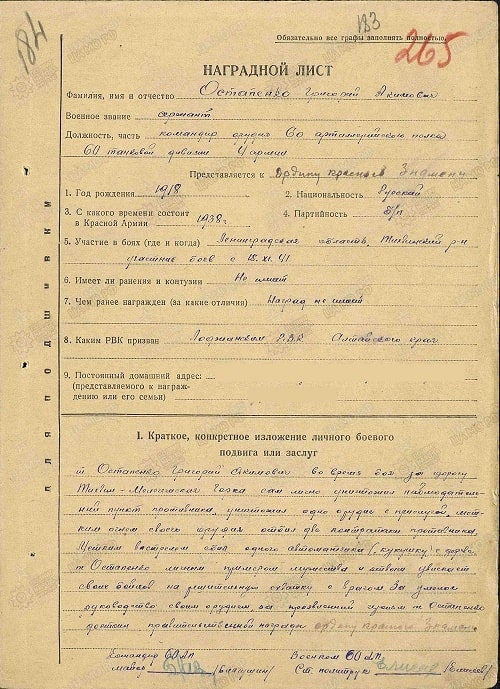 184
183
Обязательно все графы заполнять полностью.
265
НАГРАДНОЙ ЛИСТ
Фамилия, имя и отчество Остапенко Григорий Акимович
Военное звание сержант
Должность, часть командир орудия 60 артиллерийского полка
60 танковой дивизии 4 армии
Представляется к Ордену Красного Знамени
1. Год рождения 1918 2. Национальность Русский
3. С какого времени состоит
в Красной Армии 1938г 4. Партийность б/п
5. Участие в боях (где и когда) Ленинградская область, Тихвинский р-н
участник боев с 15.XI.41
6. Имеет ли ранения и контузии Не имеет
7. Чем ранее награжден (за какие отличия) Наград не имеет
8. Каким РВК призван РВК Алтайского края
9. Постоянный домашний адрес:
(представляемого к награж-
дению или его семьи)
для подшивки
I. Краткое, конкретное изложение личного боевого
подвига или заслуг
т Остапенко Григорий Акимович во время боя за дорогу
Тихвин - горка сам лично уничтожил наблюдатель-
ный пункт противника, уничтожил одно орудие с прислугой, мет-
ким огнем своего орудия отбил две контратаки противника.
Метким выстрелом снял одного автоматчика ("кукушку") с дерева
т Остапенко личным примером мужества и отваги увлекает
своих бойцов на решительную схватку с врагом За умелое
руководство своим орудием за проявленный т Остапенко
достоин правительственной награды ордену Красного Знамени
Командир 60 ап Военком 60 ап
майор Ст. политрук